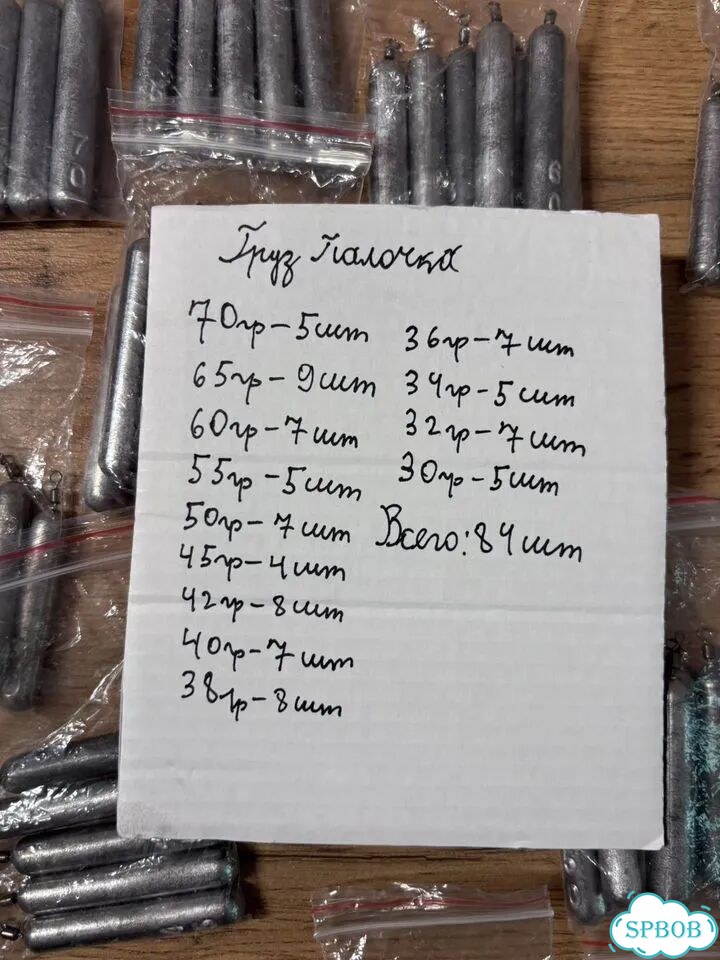 70
60
Груз Палочка
70гр-5шт
65гр-9шт
60гр-7шт
55гр-5шт
50гр-7шт
45гр-4шт
42гр-8шт
40гр-7шт
38гр-8шт
36гр-7шт
34гр-5шт
32гр-7шт
30гр-5шт
Всего:84шт
SPBOB